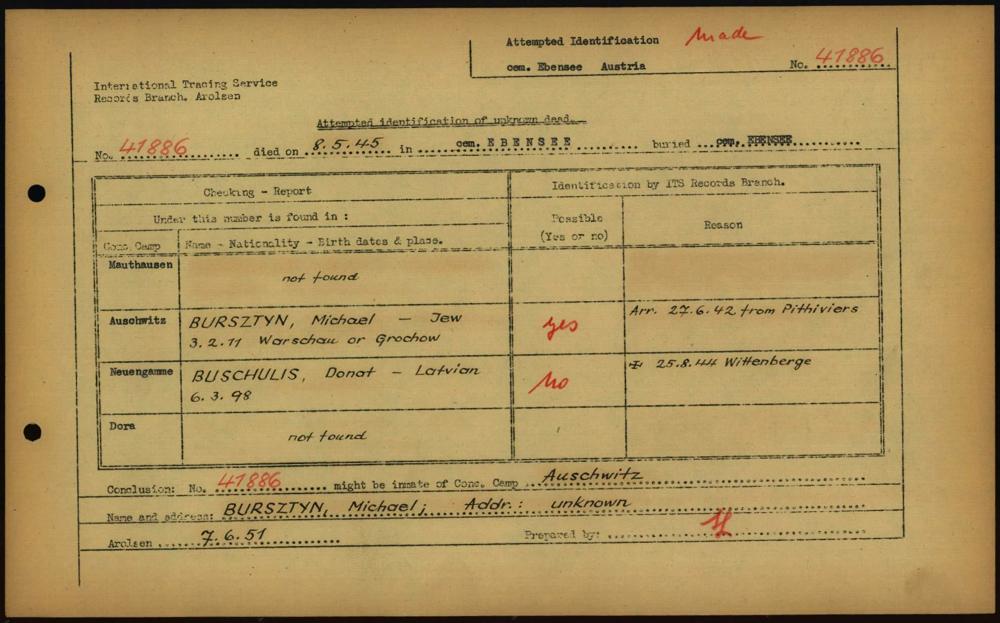 Attempted Identification made
cem. Ebensee Austria No. 41886
International Tracing Service
Records Branch. Arolsen
Attempted identification of unknown dead.
No. 41886 died on 8.5.45 in cem. EBENSEE buried cem. EBENSEE
Checking - Report
Identification by ITS Records Branch.
Under this number is found in :
Possible
(Yes or no)
Reason
Conc. Camp
Name - Nationality - Birth dates & place.
Mauthausen
not found
Auschwitz
BURSZTYN, Michael - Jew
3.2.11 Warschau or Grochow
yes
Arr. 27.6.42 from Pithiviers
Neuengamme
BUSCHULIS, Donat - Latvian
6.3.98
No
25.8.44 Wittenberge
Dora
not found
Conclusion: No. 41886 might be inmate of Conc. Camp Auschwitz
Name and address: BURSZTYN, Michael; Addr.: unknown
Arolsen 7.6.51 Prepared by: